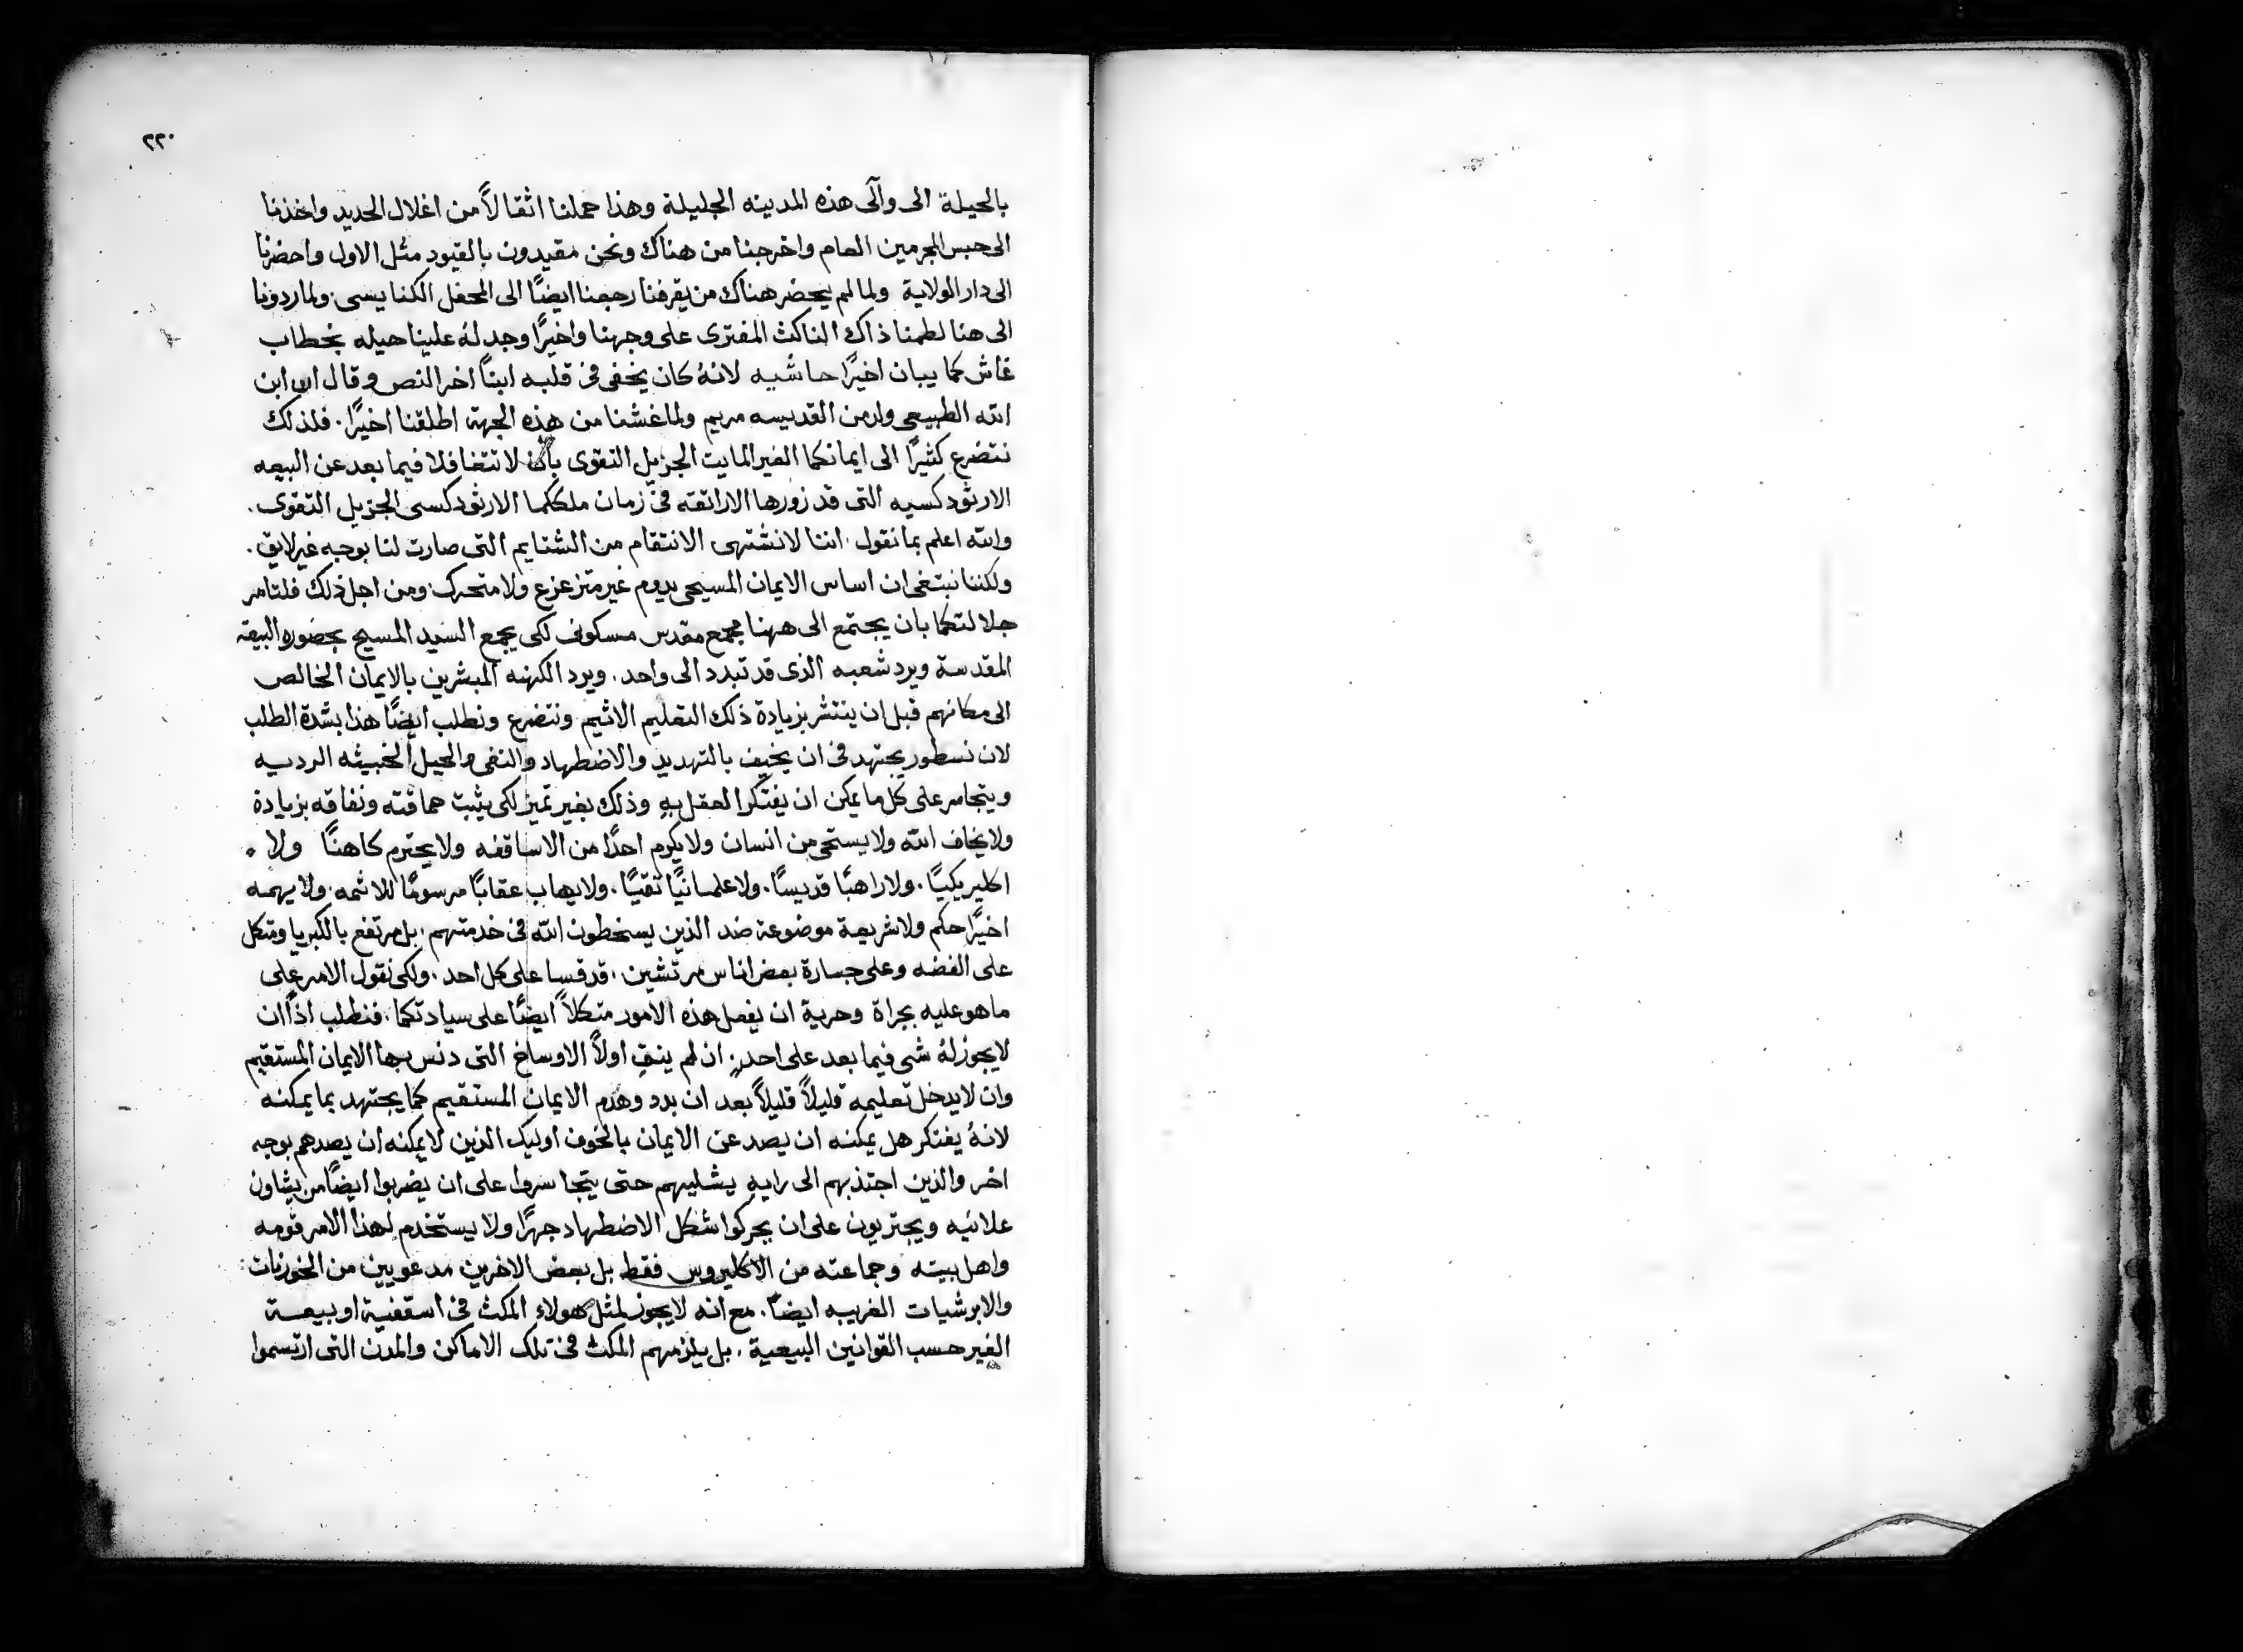 ٢٢٠
بالحيلة الى وآلى هذه المدينه الجليلة وهذا حملنا اثقالاً من اغلال الحديد واخذنا
الى حبس المجرمين العام واخرجنا من هناك ونحن مقيدون بالقيود مثل الاول واحضرنا
الى دار الولاية ولما لم يحضر هناك من يقرفنا رجعنا ايضًا الى المحفل الكنايسى ولما ردونا
الى هنا لطمنا ذاك الناكث المفترى على وجهنا واخيرًا وجد لهُ علينا حيله بخطاب
غاش كما يبان اخيرًا حاشيه لانهُ كان يخفى فى قلبه ابنًا اخر النص وقال ان ابن
الله الطبيعى ولد من القديسه مريم ولما غشنا من هذه الجهة اطلقنا اخيرًا . فلذلك
نتضرع كثيرًا الى ايمانكما الغير المايت الجزيل التقوى بان لا تتغافلا فيما بعد عن البيعه
الارثودكسيه التى قد زورها الاراتقه فى زمان ملككما الارثودكسى الجزيل التقوى .
والله اعلم بما نقول . اننا لا نشتهى الانتقام من الشتايم التى صارت لنا بوجه غير لايق .
ولكننا نبتغى ان اساس الايمان المسيحى يدوم غير متزعزع ولا متحرك . ومن اجل ذلك فلتامر
جلالتكما بان يجتمع الى ههنا مجمع مقدس مسكونى لكى يجمع السيد المسيح بحضوره البيعه
المقدسة ويرد شعبه الذى قد تبدد الى واحد . ويرد الكهنه المبشرين بالايمان الخالص
الى مكانهم قبل ان ينتشر بزيادة ذلك التعليم الاثيم ونتضرع ونطلب ايضًا هذا بشدة الطلب
لان نسطور يجتهد فى ان يخيف بالتهديد والاضطهاد والنفى والحيل الخبيثه الرديه
ويتجاسر على كل ما يمكن ان يفتكر العقل بهِ وذلك بغير تميز لكى يثبت حماقته ونفاقه بزيادة
ولا يخاف الله ولا يستحى من انسان ولا يكرم احدًا من الاساقفه ولا يحترم كاهنًا ولا
اكليريكيًا . ولا راهبًا قديسًا . ولا علمانيًا تقيًا . ولا يهاب عقابًا مرسومًا للاثمه . ولا يهمه
اخيرًا حكم ولا شريعة موضوعة ضد الذين يسخطون الله فى خدمتهم . بل مرتفع بالكبريا ومتكل
على الفضه وعلى جسارة بعض اناس مرتشين . قد قسا على كل احد . ولكى نقول الامر على
ما هو عليه بجراة وحرية ان يفعل هذه الامور متكلاً ايضًا على سيادتكما . فنطلب اذًا ان
لا يجوز لهُ شى فيما بعد على احدٍ . ان لم ينقِ اولاً الاوساخ التى دنس بها الايمان المستقيم
وان لا يدخل تعليمه قليلاً قليلاً بعد ان بدد وهدم الايمان المستقيم كما يجتهد بما يمكنه
لانهُ يفتكر هل يمكنه ان يصد عن الايمان بالخوف اوليك الذين لا يمكنه ان يصدهم بوجه
اخر والذين اجتذبهم الى رايهِ يشليهم حتى يتجاسروا على ان يضربوا ايضًا من يشاون
علانيه ويجتريون على ان يحركوا شكل الاضطهاد جهرًا ولا يستخدم لهذا الامر قومه
واهل بيته وجماعته من الاكليروس فقط بل بعض الاخرين مدعويين من الخورنيات
والابرشيات الغريبه ايضًا . مع انه لا يجوز لمثل هولاءِ المكث فى اسقفية او بيعة
الغير حسب القوانين البيعية . بل يلزمهم المكث فى تلك الاماكن والمدن التى ارتسموا